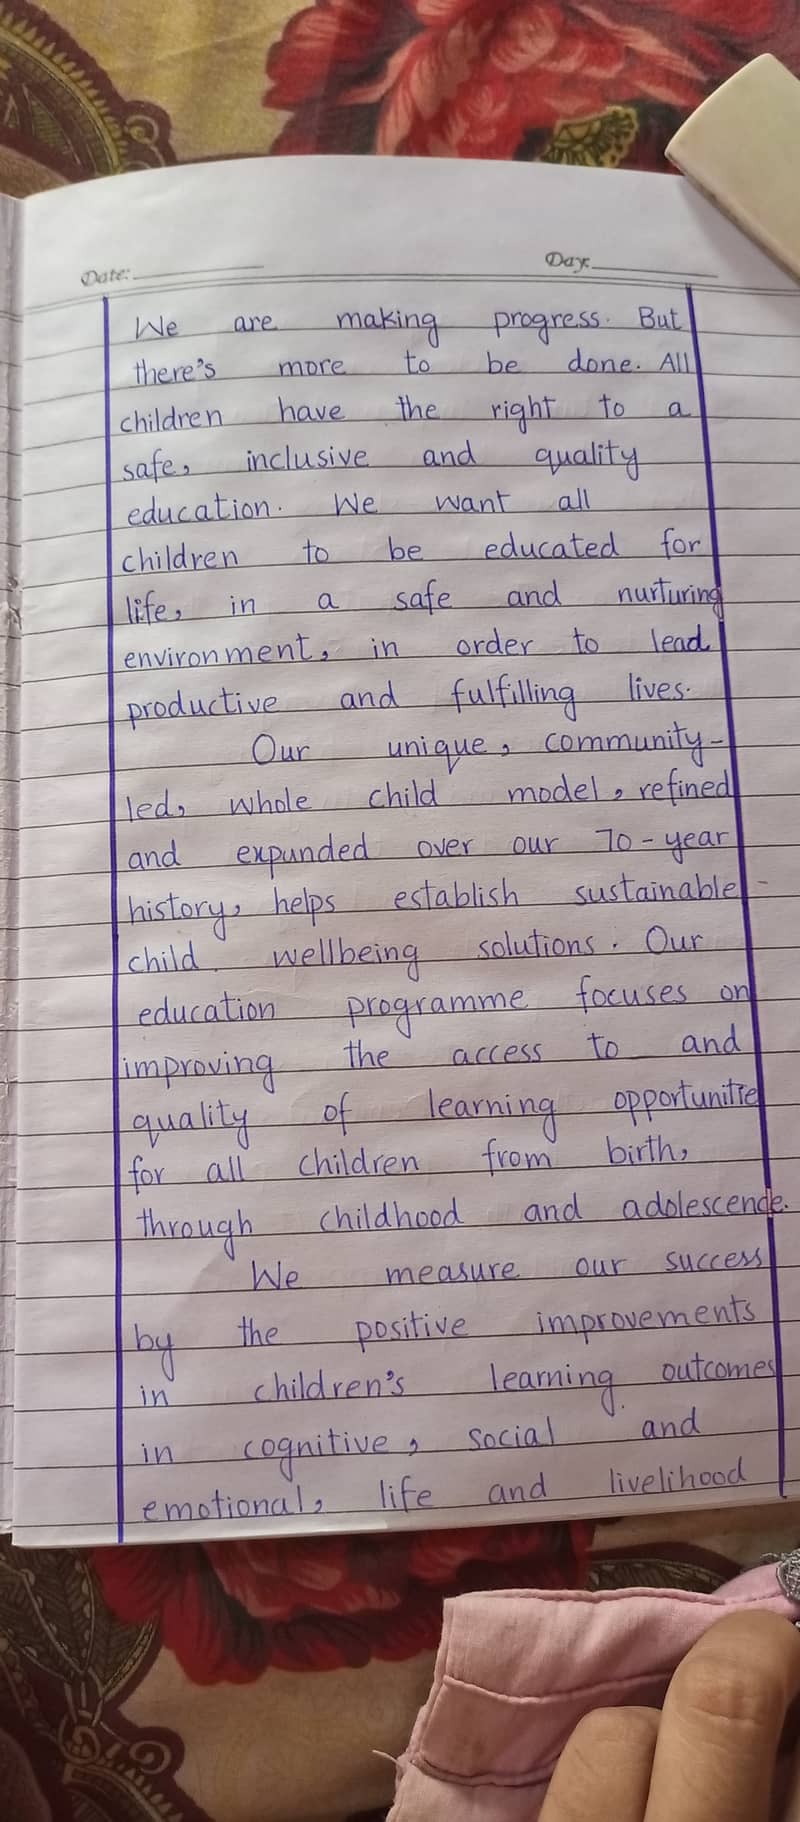 Date: Day:
We are making progress. But
there's more to be done. All
children have the right to a
safe, inclusive and quality
education. We want all
children to be educated for
life, in a safe and nurturing
environment, in order to lead
productive and fulfilling lives.
Our unique, community-
led, whole child model, refined
and expunded over our 70-year
history, helps establish sustainable
child wellbeing solutions. Our
education programme focuses on
improving the access to and
quality of learning opportunitie
for all children from birth,
through childhood and adolescende.
We measure our success
by the positive improvements
in children's learning outcomes
in cognitive, social and
emotional, life and livelihood